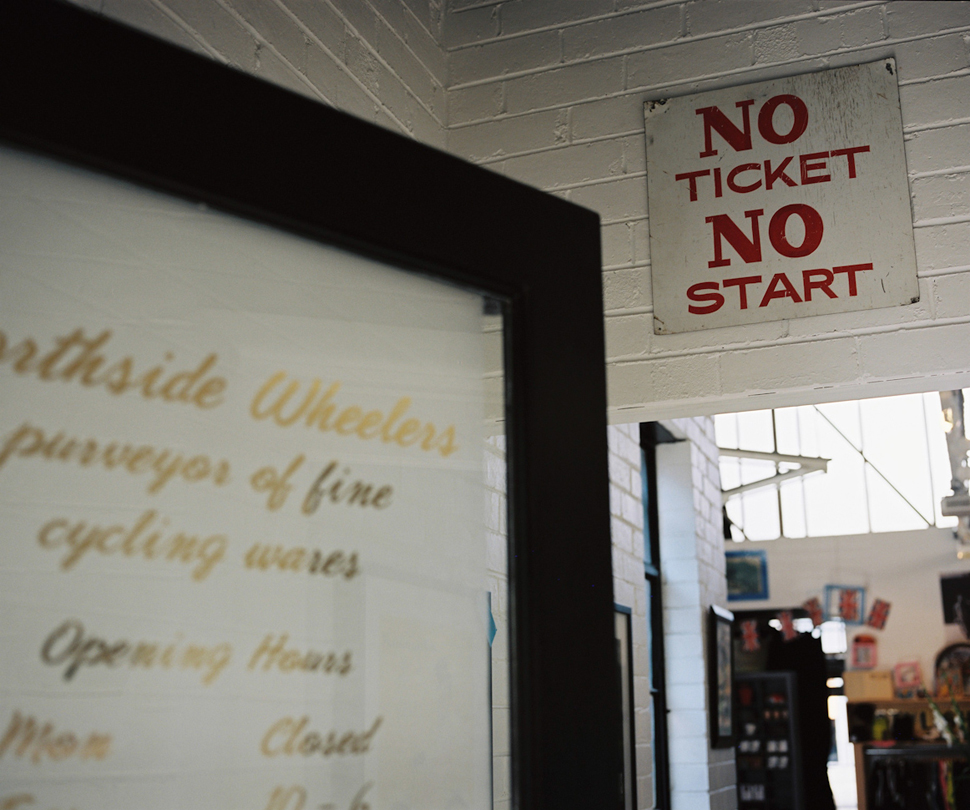 orthside Wheelers
purveyor of fine
cycling wares
Opening Hours
Mon Closed
10 - 6
NO
TICKET
NO
START